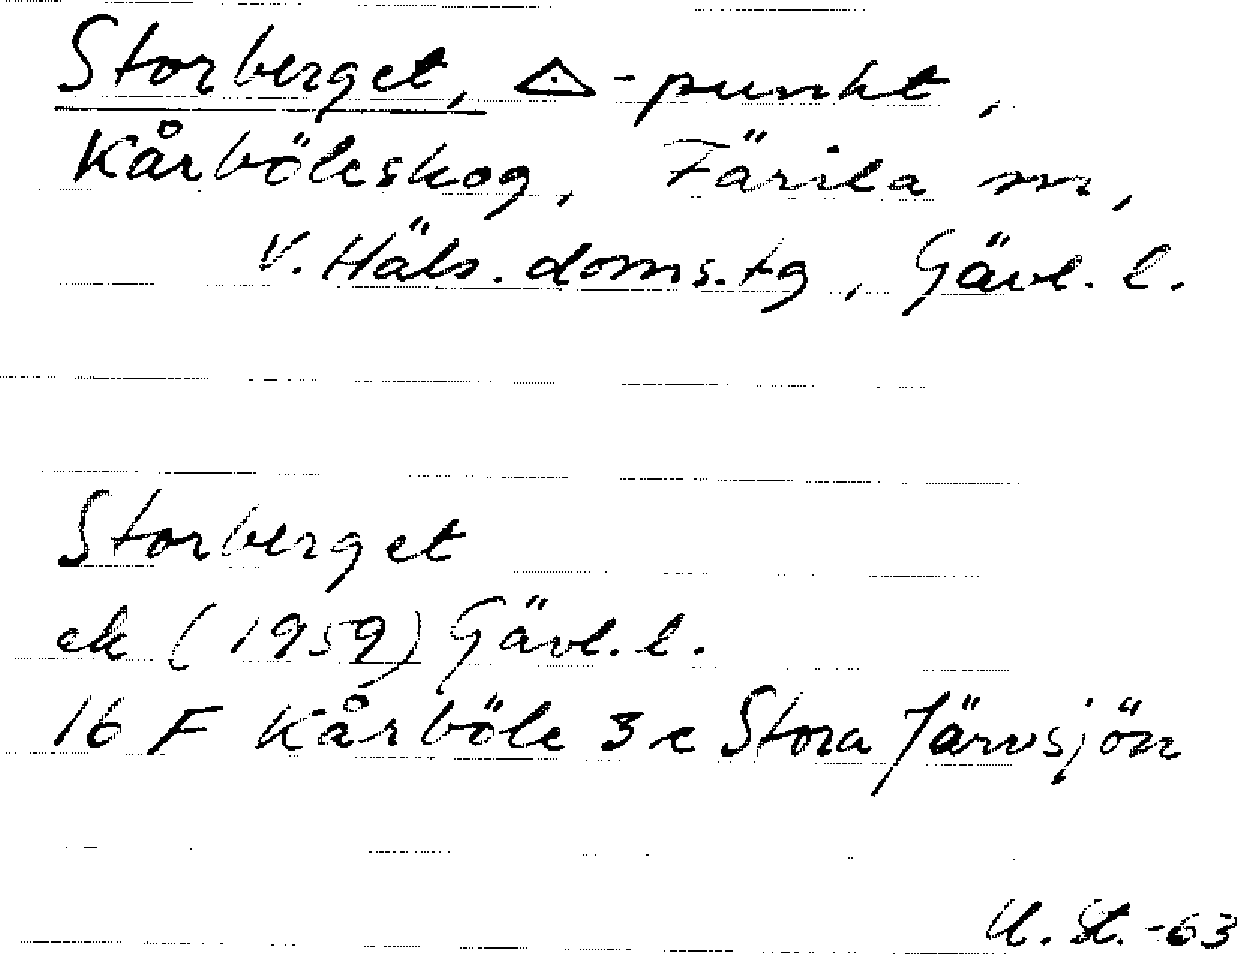 Storberget, △-punkt,
Kårböleskog, Färila sn,
V. Häls. doms.tg, Gävl. l.
Storberget
ek (1959) Gävl. l.
16 F Kårböle 3 e Stora Järvsjön
U. St. -63